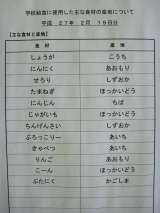 学校給食に使用した主な食材の産地について
平成 27年 2月 19日分
【主な食材と産地】
食材 産地
しょうが こうち
にんにく あおもり
せろり しずおか
たまねぎ ほっかいどう
にんじん ちば
じゃがいも ほっかいどう
ちんげんさい しずおか
ぶろっこりー あいち
きゃべつ あいち
りんご あおもり
こーん ほっかいどう
ぶたにく かごしま